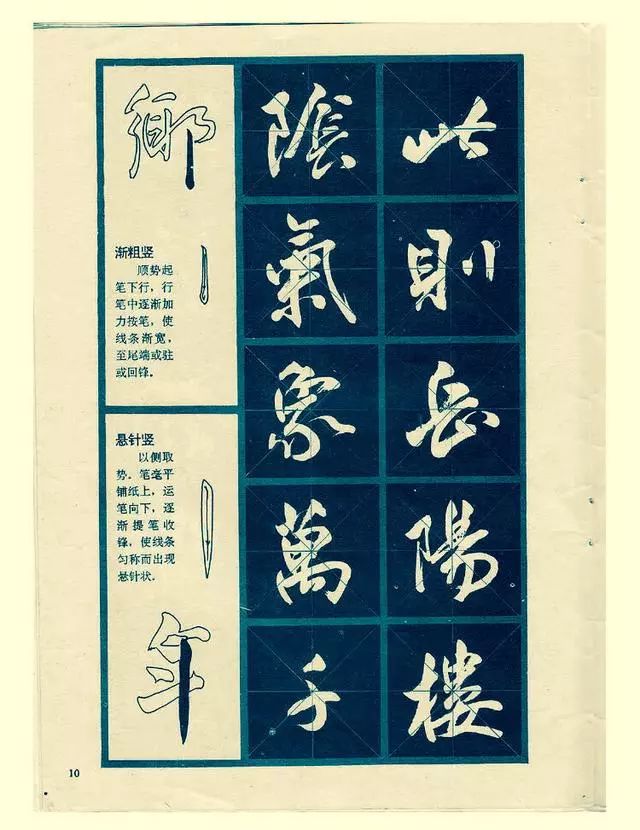 鄉
渐粗竖
顺势起
笔下行，行
笔中逐渐加
力按笔，使
线条渐宽，
至尾端或驻
或回锋。
悬针竖
以侧取
势。笔毫平
铺纸上，运
笔向下，逐
渐提笔收
锋，使线条
匀称而出现
悬针状。
年
陰氣象萬千
此則岳陽樓
10